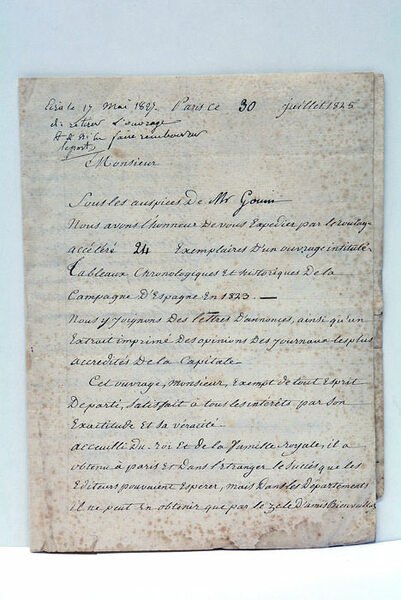 le 17 Mai 1827. Paris Ce 30 juillet 1825
de retirer l'ouvrage
faire rembourser
le port
Monsieur
Sous les auspices De Mr Gouin
Nous avons l'honneur De vous Expedier par le roulage
accéléré 24 Exemplaires D'un ouvrage intitulé
Tableaux Chronologiques Et historiques De la
Campagne D'Espagne En 1823. —
Nous y joignons Des lettres D'annonces, ainsi qu'un
Extrait imprimé Des opinions Des journaux les plus
accredités De la Capitale.
Cet ouvrage, monsieur, Exempt de tout Esprit
De parti, satisfait à tous les interêts par son
Exactitude et sa véracité.
accueilli Du Roi Et de la famille royale, il a
obtenu à paris Et Dans l'Etranger le succès que les
Editeurs pouvaient Esperer, mais Dans les Departements
il ne peut En obtenir que par le zèle D'amis